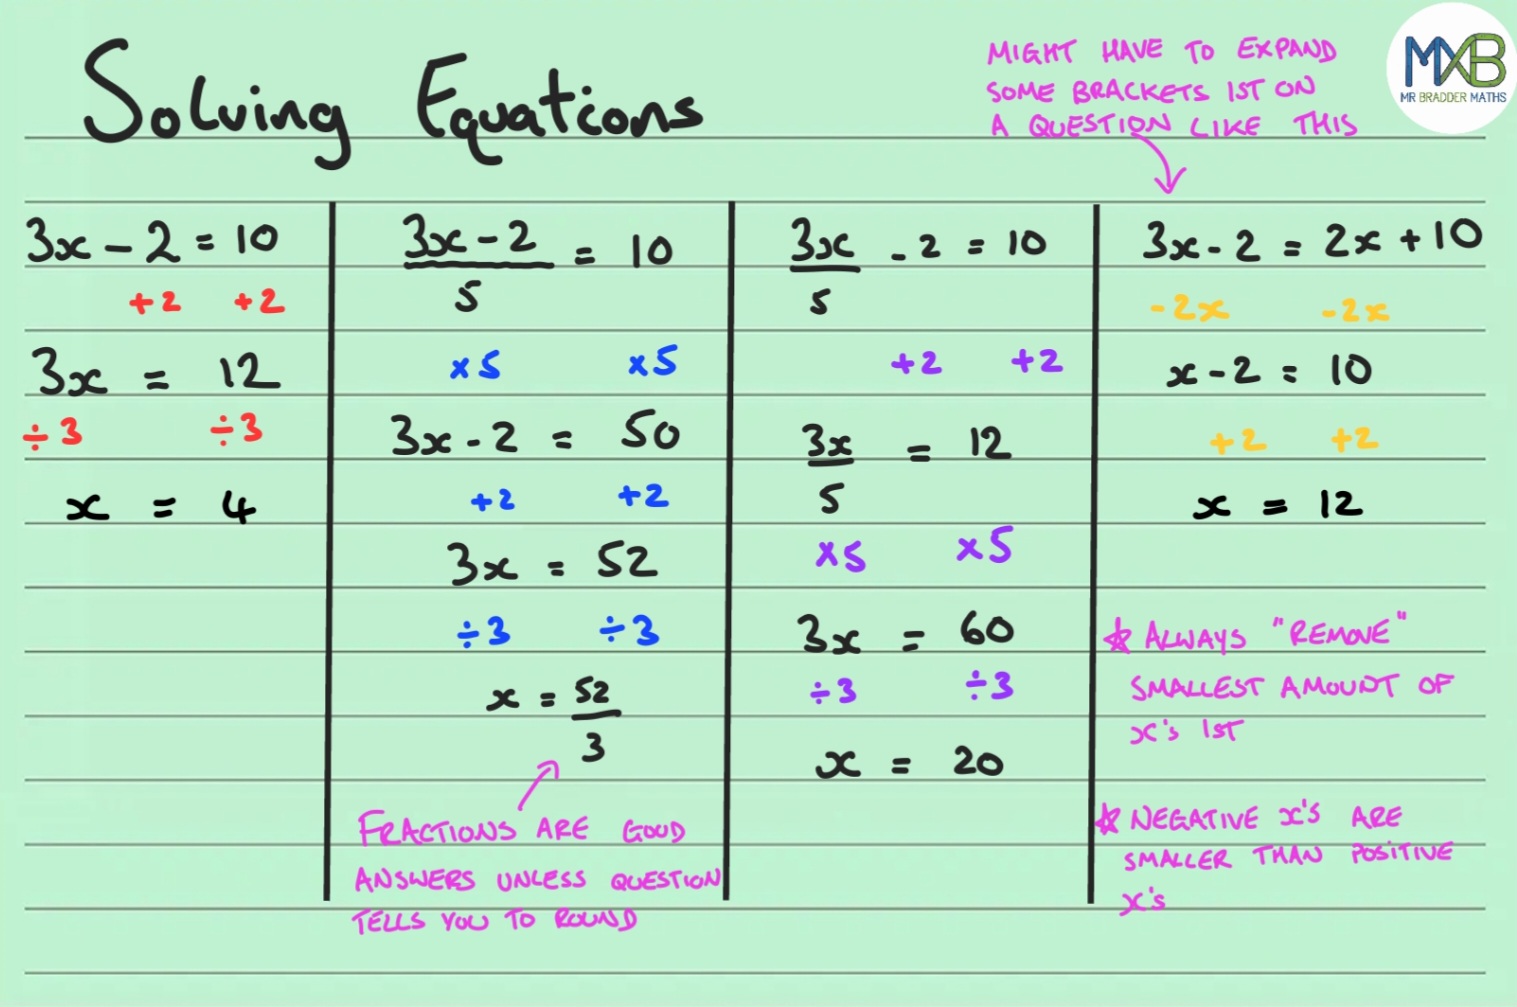 Solving Equations
MIGHT HAVE TO EXPAND
SOME BRACKETS 1ST ON
A QUESTION LIKE THIS
MXB
MR BRADDER MATHS
3x - 2 = 10
+2 +2
3x = 12
÷3 ÷3
x = 4
3x - 2
5
= 10
×5 ×5
3x - 2 = 50
+2 +2
3x = 52
÷3 ÷3
x = 52
3
FRACTIONS ARE GOOD
ANSWERS UNLESS QUESTION
TELLS YOU TO ROUND
3x
5
- 2 = 10
+2 +2
3x
5
= 12
×5 ×5
3x = 60
÷3 ÷3
x = 20
3x - 2 = 2x + 10
-2x -2x
x - 2 = 10
+2 +2
x = 12
☆ ALWAYS "REMOVE"
SMALLEST AMOUNT OF
x's 1ST
☆ NEGATIVE x's ARE
SMALLER THAN POSITIVE
x's